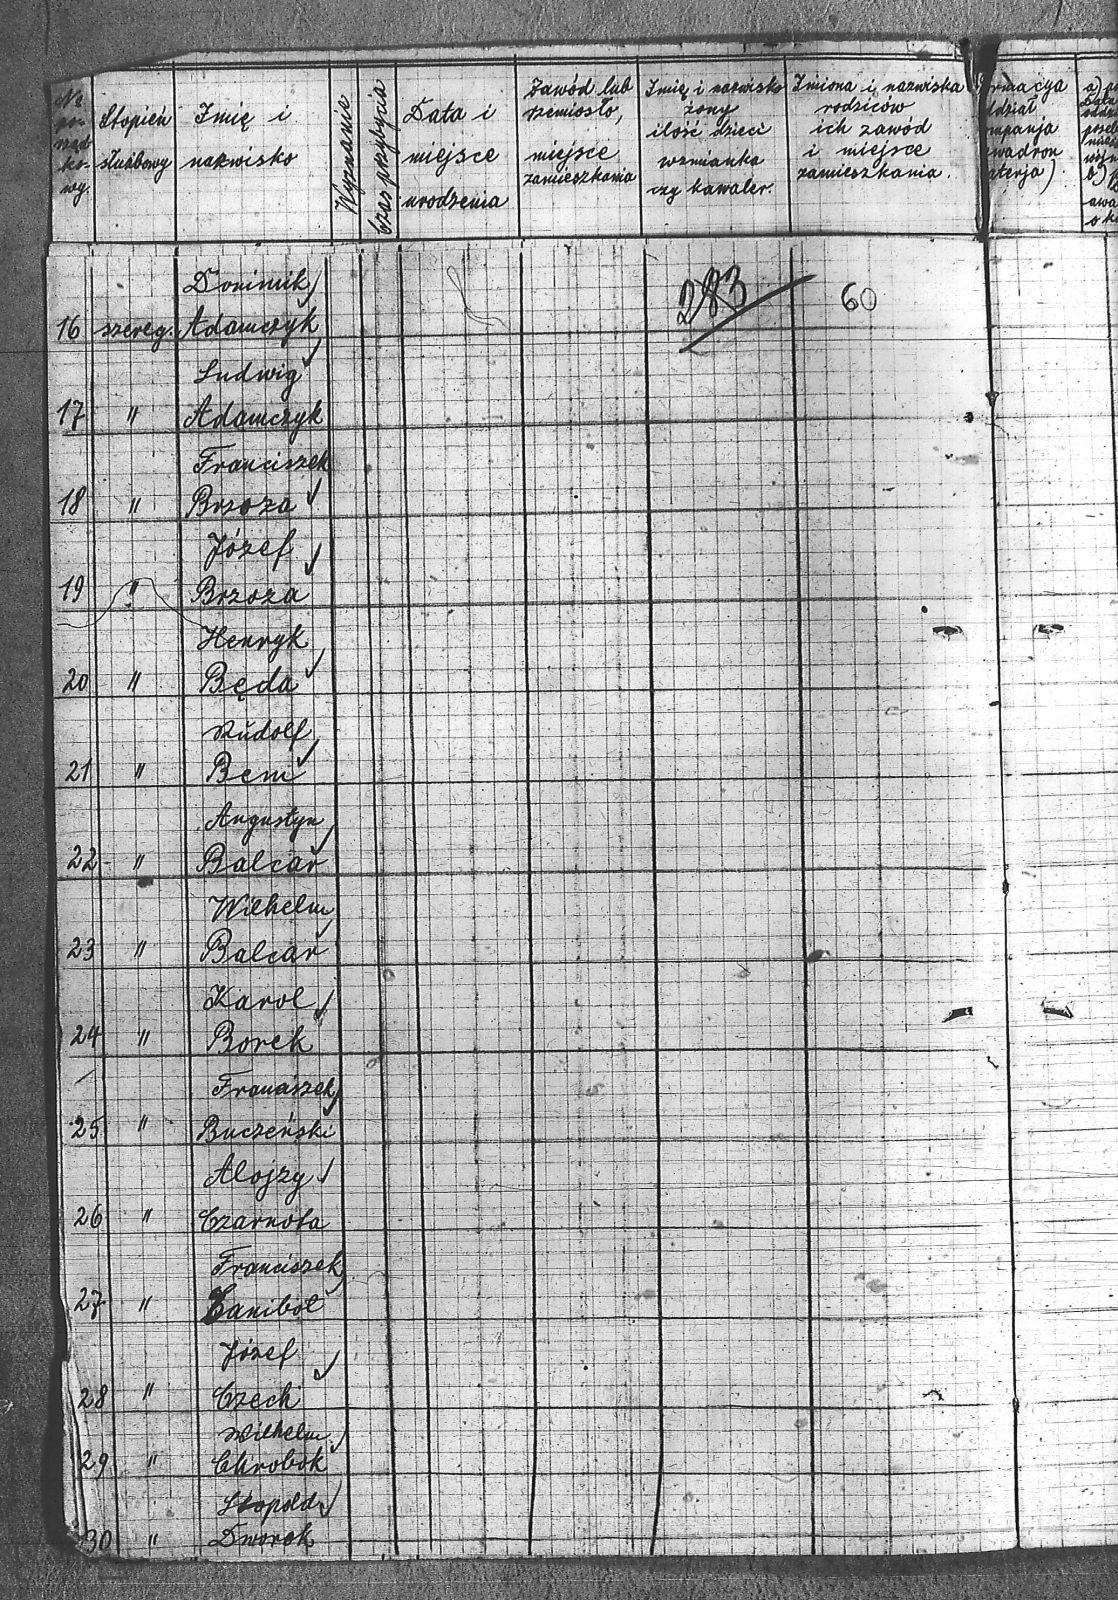 No po- rząd- ko- wy.
Stopień służbowy
Imię i nazwisko
Wyznanie
Czas przybycia
Data i miejsce urodzenia
Zawód lub rzemiosło, miejsce zamieszkania
Imię i nazwisko żony ilość dzieci wzmianka czy kawaler.
Imiona i nazwiska rodziców ich zawód i miejsce zamieszkania.
rmacya
ddział
mpanja
wadron
terja)
a)
b)
283
60
Dominik
16 szereg. Adamczyk
Ludwig
17 " Adamczyk
Franciszek
18 " Brzoza
Józef
19 " Brzoza
Henryk
20 " Będa
Rudolf
21 " Bem
Augustyn
22 " Balcar
Wilhelm
23 " Balcar
Karol
24 " Borek
Franciszek
25 " Buczeński
Alojzy
26 " Czarnota
Franciszek
27 " Caniból
Józef
28 " Czech
Wilhelm
29 " Chrobok
Leopold
30 " Dworok